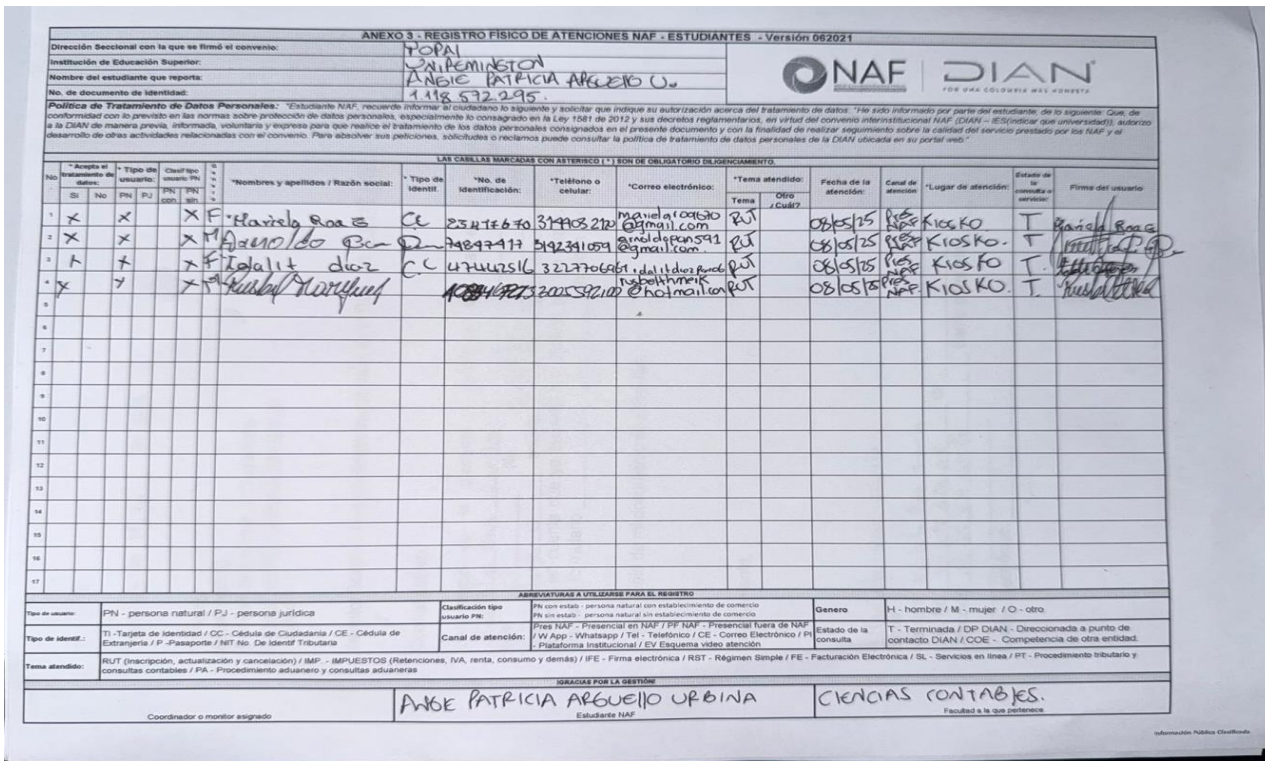 ANEXO 3 - REGISTRO FÍSICO DE ATENCIONES NAF - ESTUDIANTES - Versión 062021
Dirección Seccional con la que se firmó el convenio: YOPAL
Institución de Educación Superior: UNIREMINGTON
Nombre del estudiante que reporta: ANGIE PATRICIA ARGUELLO U.
No. de documento de identidad: 1.118.572.295.
NAF DIAN
POR UNA COLOMBIA MÁS HONESTA
Política de Tratamiento de Datos Personales: "Estudiante NAF, recuerde informar al ciudadano lo siguiente y solicitar que indique su autorización acerca del tratamiento de datos: "He sido informado por parte del estudiante, de lo siguiente: Que, de
conformidad con lo previsto en las normas sobre protección de datos personales, especialmente lo consagrado en la Ley 1581 de 2012 y sus decretos reglamentarios, en virtud del convenio interinstitucional NAF (DIAN – IES(indicar que universidad)), autorizo
a la DIAN de manera previa, informada, voluntaria y expresa para que realice el tratamiento de los datos personales consignados en el presente documento y con la finalidad de realizar seguimiento sobre la calidad del servicio prestado por los NAF y el
desarrollo de otras actividades relacionadas con el convenio. Para absolver sus peticiones, solicitudes o reclamos puede consultar la política de tratamiento de datos personales de la DIAN ubicada en su portal web."
LAS CASILLAS MARCADAS CON ASTERISCO ( * ) SON DE OBLIGATORIO DILIGENCIAMIENTO.
No * Acepta el tratamiento de datos: Si No * Tipo de usuario: PN PJ Clasif tipo usuario PN PN con PN sin *Nombres y apellidos / Razón social: * Tipo de identif. *No. de identificación: *Teléfono o celular: *Correo electrónico: *Tema atendido: Tema Otro ¿Cuál? Fecha de la atención: Canal de atención *Lugar de atención: Estado de la consulta o servicio: Firma del usuario
1 X X X F Mariela Roa CC 23417670 marielar09670@gmail.com RUT 08/05/25 Pres NAF Kiosko T Mariela Roa
2 X X X M 74897417 3142391059 arnoldopan591@gmail.com RUT 08/05/25 Pres NAF Kiosko. T
3 X X X F Idalit diaz C.C 47442516 RUT 08/05/25 Pres NAF KIOSKO T.
4 X X X M @hotmail.com RUT 08/05/25 Pres NAF KIOSKO. T.
5
6
7
8
9
10
11
12
13
14
15
16
17
ABREVIATURAS A UTILIZARSE PARA EL REGISTRO
Tipo de usuario: PN - persona natural / PJ - persona jurídica Clasificación tipo usuario PN: PN con estab - persona natural con establecimiento de comercio PN sin estab - persona natural sin establecimiento de comercio Genero H - hombre / M - mujer / O - otro
Tipo de identif.: TI -Tarjeta de Identidad / CC - Cédula de Ciudadanía / CE - Cédula de Extranjería / P -Pasaporte / NIT No. De Identif Tributaria Canal de atención: Pres NAF - Presencial en NAF / PF NAF - Presencial fuera de NAF / W App - Whatsapp / Tel - Telefónico / CE - Correo Electrónico / PI - Plataforma Institucional / EV Esquema video atención Estado de la consulta T - Terminada / DP DIAN - Direccionada a punto de contacto DIAN / COE - Competencia de otra entidad.
Tema atendido: RUT (Inscripción, actualización y cancelación) / IMP. - IMPUESTOS (Retenciones, IVA, renta, consumo y demás) / IFE - Firma electrónica / RST - Régimen Simple / FE - Facturación Electrónica / SL - Servicios en línea / PT - Procedimiento tributario y
consultas contables / PA - Procedimiento aduanero y consultas aduaneras
¡GRACIAS POR LA GESTIÓN!
ANGIE PATRICIA ARGUELLO URBINA CIENCIAS CONTABLES.
Coordinador o monitor asignado Estudiante NAF Facultad a la que pertenece
Información Pública Clasificada